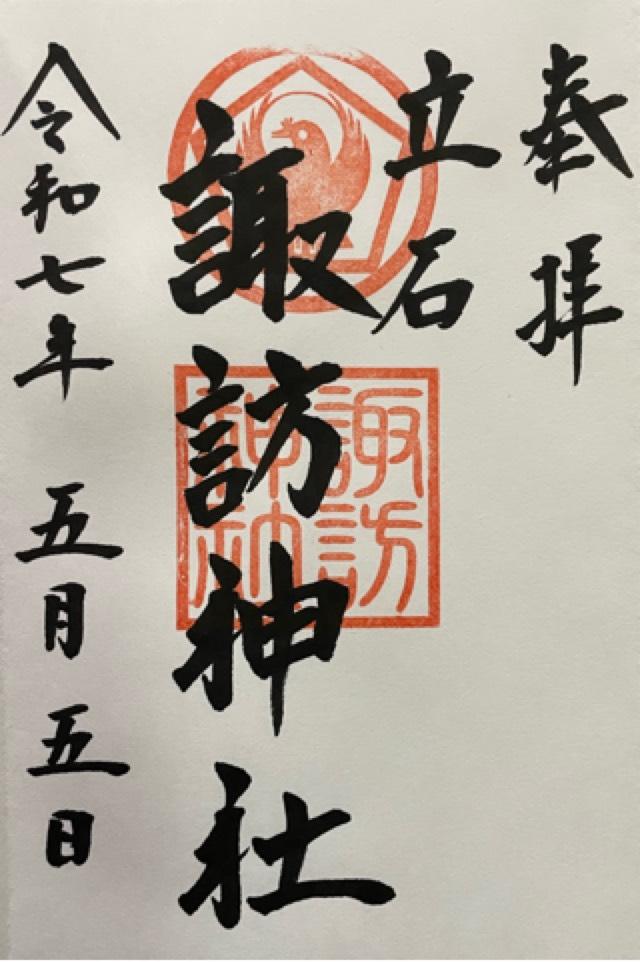 奉拝
立石
諏訪神社
諏訪
神社
令和七年 五月五日